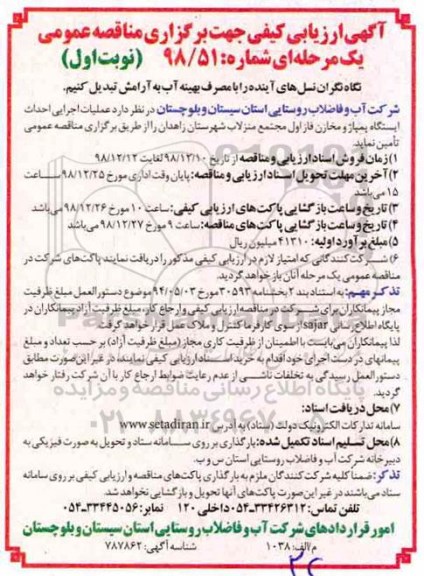 آگهی ارزیابی کیفی جهت برگزاری مناقصه عمومی
یک مرحله‌ای شماره: ۹۸/۵۱ (نوبت اول)
نگاه نگران نسل‌های آینده را با مصرف بهینه آب به آرامش تبدیل کنیم.
شرکت آب و فاضلاب روستایی استان سیستان و بلوچستان در نظر دارد عملیات اجرایی احداث
ایستگاه پمپاژ و مخازن فاز اول مجتمع منزلاب شهرستان زاهدان را از طریق برگزاری مناقصه عمومی
تأمین نماید.
۱) زمان فروش اسناد ارزیابی و مناقصه از تاریخ ۹۸/۱۲/۱۰ لغایت ۹۸/۱۲/۱۲
۲) آخرین مهلت تحویل اسناد ارزیابی و مناقصه: پایان وقت اداری مورخ ۹۸/۱۲/۲۵ ساعت
۱۵ می‌باشد
۳) تاریخ و ساعت بازگشایی پاکت‌های ارزیابی کیفی: ساعت ۱۰ مورخ ۹۸/۱۲/۲۶ می‌باشد
۴) تاریخ و ساعت بازگشایی پاکت‌های مناقصه: ساعت ۹ مورخ ۹۸/۱۲/۲۷ می‌باشد
۵) مبلغ برآورد اولیه: ۴۱۳۱۰ میلیون ریال
۶) شرکت کنندگانی که امتیاز لازم در ارزیابی کیفی مذکور را دریافت نمایند پاکت‌های شرکت در
مناقصه عمومی یک مرحله آنان باز خواهد گردید.
تذکر مهم: به استناد بند ۲ بخشنامه ۳۰۵۹۳ مورخ ۹۴/۰۵/۰۳ موضوع دستورالعمل مبلغ ظرفیت
مجاز پیمانکاران برای شرکت در مناقصه ارزیابی کیفی و ارجاع کار، مبلغ ظرفیت آزاد پیمانکاران در
پایگاه اطلاع رسانی sajar از سوی کارفرما کنترل و ملاک عمل قرار خواهد گرفت.
لذا پیمانکاران می‌بایست با اطمینان از ظرفیت کاری مجاز (مبلغ ظرفیت آزاد) بر حسب تعداد و مبلغ
پیمانهای در دست اجرای خود اقدام به خرید اسناد ارزیابی کیفی نمایند، در غیر این صورت مطابق
دستورالعمل رسیدگی به تخلفات ناشی از عدم رعایت ضوابط ارجاع کار با آن شرکت رفتار خواهد
گردید.
۷) محل دریافت اسناد:
سامانه تدارکات الکترونیک دولت (ستاد) به آدرس www.setadiran.ir
۸) محل تسلیم اسناد تکمیل شده: بارگذاری بر روی سامانه ستاد و تحویل به صورت فیزیکی به
دبیرخانه شرکت آب و فاضلاب روستایی استان س و ب.
تذکر: ضمنا کلیه شرکت کنندگان ملزم به بارگذاری پاکت‌های مناقصه و ارزیابی کیفی بر روی سامانه
ستاد می‌باشند در غیر این صورت پاکت‌های آنها تحویل و بازگشایی نخواهد شد.
تلفن تماس: ۳۳۴۲۶۳۱۲-۰۵۴ داخلی ۱۲۰ نمابر: ۳۳۴۴۵۰۵۶-۰۵۴
امور قراردادهای شرکت آب و فاضلاب روستایی استان سیستان و بلوچستان
م الف: ۱۰۳۸ شناسه آگهی: ۷۸۷۸۶۲
پایگاه اطلاع رسانی مناقصه و مزایده
۰۲۱-۸۸۳۴۹۶۷۰-۵